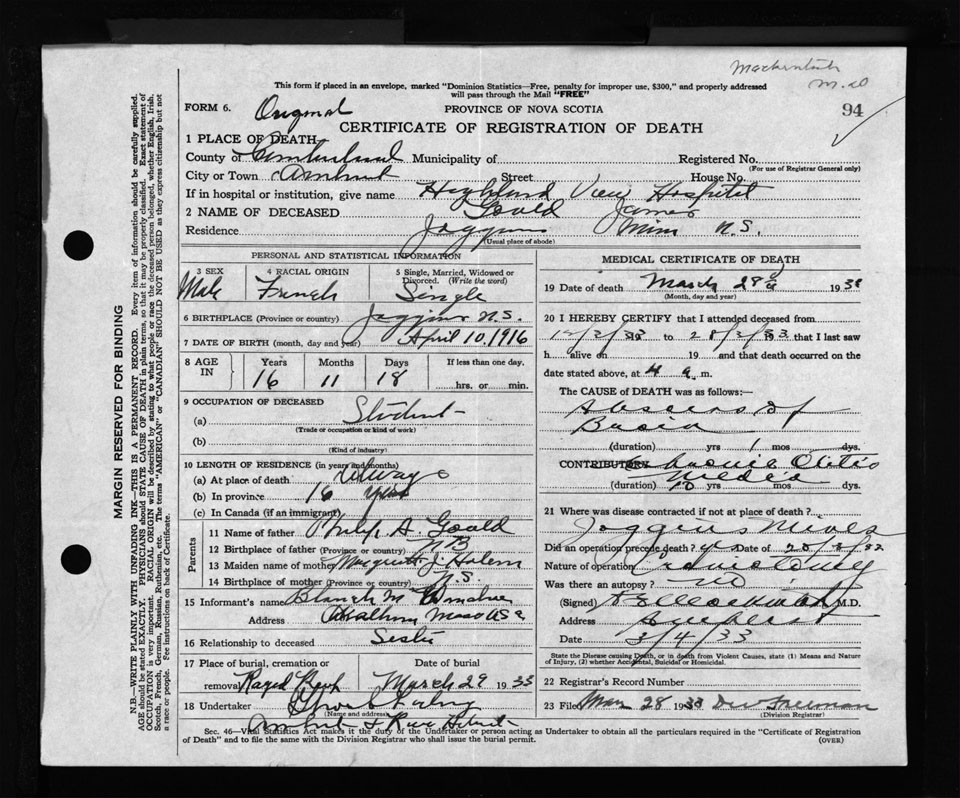 Mackintosh
M.D
This form if placed in an envelope, marked "Dominion Statistics—Free, penalty for improper use, $300," and properly addressed
will pass through the Mail "FREE"
94
FORM 6. Original PROVINCE OF NOVA SCOTIA
CERTIFICATE OF REGISTRATION OF DEATH
1 PLACE OF DEATH
County of Cumberland Municipality of Registered No.
(For use of Registrar General only)
City or Town Amherst Street House No.
If in hospital or institution, give name Highland View Hospital
2 NAME OF DECEASED Goold James
Residence Joggins Mines N.S.
(Usual place of abode)
PERSONAL AND STATISTICAL INFORMATION
3 SEX 4 RACIAL ORIGIN 5 Single, Married, Widowed or
Divorced. (Write the word)
Male French Single
6 BIRTHPLACE (Province or country) Joggins N.S.
7 DATE OF BIRTH (month, day and year) April 10, 1916
8 AGE IN Years Months Days If less than one day.
16 11 18 hrs. or min.
9 OCCUPATION OF DECEASED
(a) Student
(Trade or occupation or kind of work)
(b)
(Kind of industry)
10 LENGTH OF RESIDENCE (in years and months)
(a) At place of death Always
(b) In province 16 years
(c) In Canada (if an immigrant)
Parents
11 Name of father Philip A Goold
12 Birthplace of father (Province or country) NB
13 Maiden name of mother Margaret J
14 Birthplace of mother (Province or country) N.S.
15 Informant's name Blanch M
Address Mass USA
16 Relationship to deceased Sister
17 Place of burial, cremation or Date of burial
removal March 29 1933
18 Undertaker
(Name and address)
Amherst & River Hebert
MEDICAL CERTIFICATE OF DEATH
19 Date of death March 28 193
(Month, day and year)
20 I HEREBY CERTIFY that I attended deceased from
/3/33 19 to 28/3/33 that I last saw
h alive on 19 and that death occurred on
date stated above, at 4 a. m.
The CAUSE OF DEATH was as follows:
Abscess of
Brain
(duration) yrs 1 mos dys.
CONTRIBUTORY Chronic Otitis
Media
(duration) 10 yrs mos dys.
21 Where was disease contracted if not at place of death?
Joggins Mines
Did an operation precede death? yes Date of
Nature of operation
Was there an autopsy? no
(Signed) M.D.
Address Amherst
Date 3/4/33
State the Disease causing Death, or in death from Violent Causes, state (1) Means and Nature
of Injury, (2) whether Accidental, Suicidal or Homicidal.
22 Registrar's Record Number
23 Filed Mar 28 1933 Freeman
(Division Registrar)
Sec. 46—Vital Statistics Act makes it the duty of the Undertaker or person acting as Undertaker to obtain all the particulars required in the "Certificate of Registration
of Death" and to file the same with the Division Registrar who shall issue the burial permit. (OVER)
MARGIN RESERVED FOR BINDING
N.B.—WRITE PLAINLY WITH UNFADING INK—THIS IS A PERMANENT RECORD. Every item of information should be carefully supplied.
AGE should be stated EXACTLY. PHYSICIANS should STATE CAUSE OF DEATH in plain terms, so that it may be properly classified. Exact statement of
OCCUPATION is very important. RACIAL ORIGIN will be described by stating to what people or race the deceased person belonged, whether English, Irish,
Scotch, French, German, Russian, Ruthenian, etc. The terms "AMERICAN" or "CANADIAN" SHOULD NOT BE USED as they express citizenship but not
a race or people. See instructions on back of Certificate.